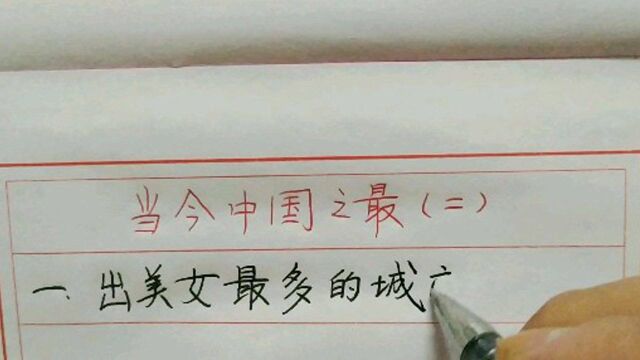 当今中国之最(二)
一.出美女最多的城